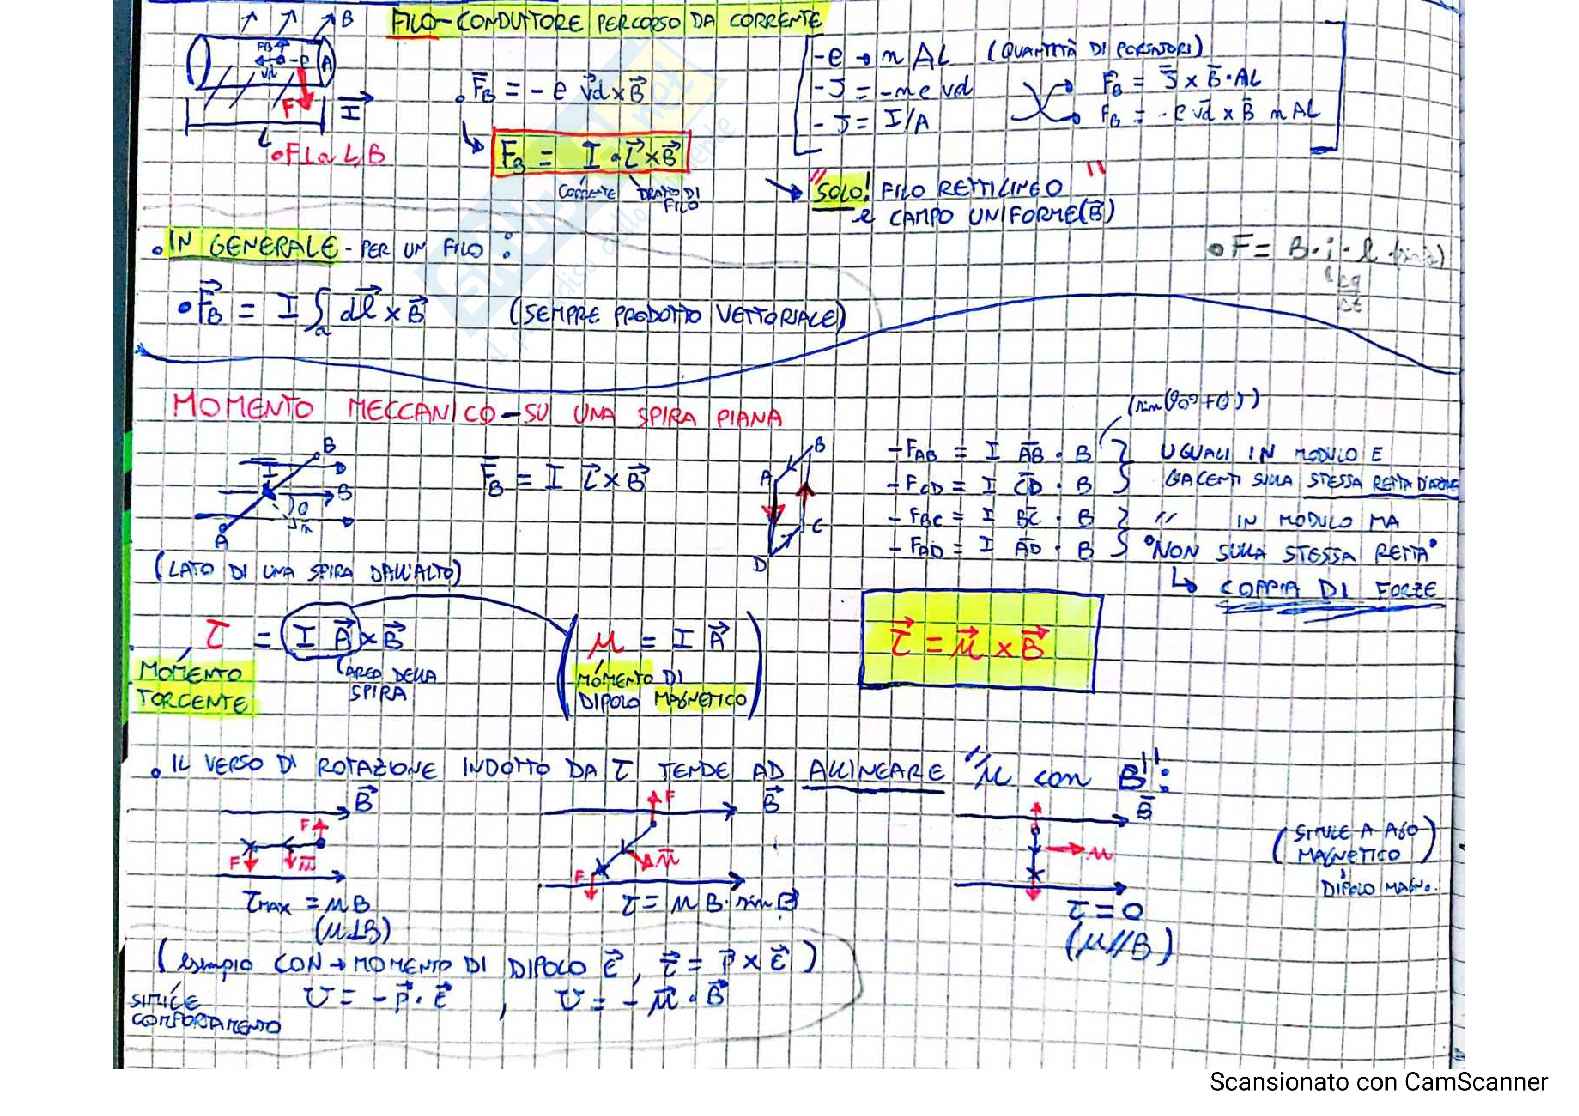 FILO-CONDUTTORE PERCORSO DA CORRENTE
B
A
F
I
L
• F⊥a L, B
F⃗B = - e v⃗d x B⃗
FB = I · L⃗ x B⃗
CORRENTE TRATTO DI FILO
- e → n A L (QUANTITÀ DI PORTATORI)
- J = - n e vd
- J = I/A
F⃗B = J⃗ x B⃗ · AL
F⃗B = - e v⃗d x B⃗ n AL
"SOLO! FILO RETTILINEO
e CAMPO UNIFORME (B⃗)"
• IN GENERALE - PER UN FILO :
• F = B · i · l
• F⃗B = I ∫a dl⃗ x B⃗ (SEMPRE PRODOTTO VETTORIALE)
MOMENTO MECCANICO - SU UNA SPIRA PIANA
B
I
B
θ
n
A
(LATO DI UNA SPIRA DALL'ALTO)
F⃗B = I L⃗ x B⃗
B
A
C
D
(sin(90°+θ))
- FAB = I AB · B } UGUALI IN MODULO E
- FCD = I CD · B } GIACENTI SULLA STESSA RETTA D'AZIONE
- FBC = I BC · B } " IN MODULO MA
- FAD = I AD · B } "NON SULLA STESSA RETTA"
↳ COPPIA DI FORZE
τ = I A⃗ x B⃗
MOMENTO TORCENTE
AREA DELLA SPIRA
( μ = I A⃗ )
MOMENTO DI
DIPOLO MAGNETICO
τ⃗ = μ⃗ x B⃗
• IL VERSO DI ROTAZIONE INDOTTO DA τ TENDE AD ALLINEARE "μ con B":
B⃗
F
F
m⃗
τmax = μB
(μ⊥B)
B⃗
F
μ⃗
F
τ = μ B · sin θ
B⃗
μ
τ = 0
(μ//B)
(SIMILE A AGO
MAGNETICO)
DIPOLO MAGN.
(esempio CON → MOMENTO DI DIPOLO E⃗, τ⃗ = p⃗ x E⃗)
SIMILE
COMPORTAMENTO
U = - p⃗ · E⃗ , U = - μ⃗ · B⃗
Scansionato con CamScanner